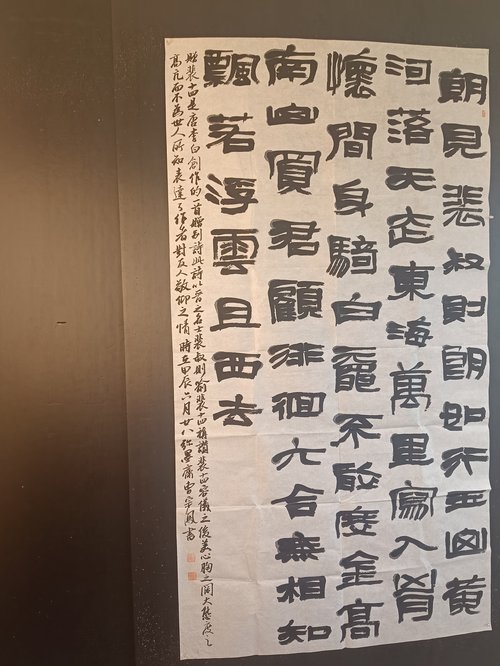 朝見裴叔則朗如行玉山黃
河落天走東海萬里寫入胷
懷間身騎白黿不敢度金高
南山買君顧徘徊六合無相知
飄若浮雲且西去
贈裴十四是唐李白創作的一首贈別詩此詩以晉之名士裴叔則喻裴十四稱讚裴十四容儀之俊美心胸之闊大態度之
高亢而不為世人所知表達了作者對友人敬仰之情時在甲辰六月廿八墨齋書